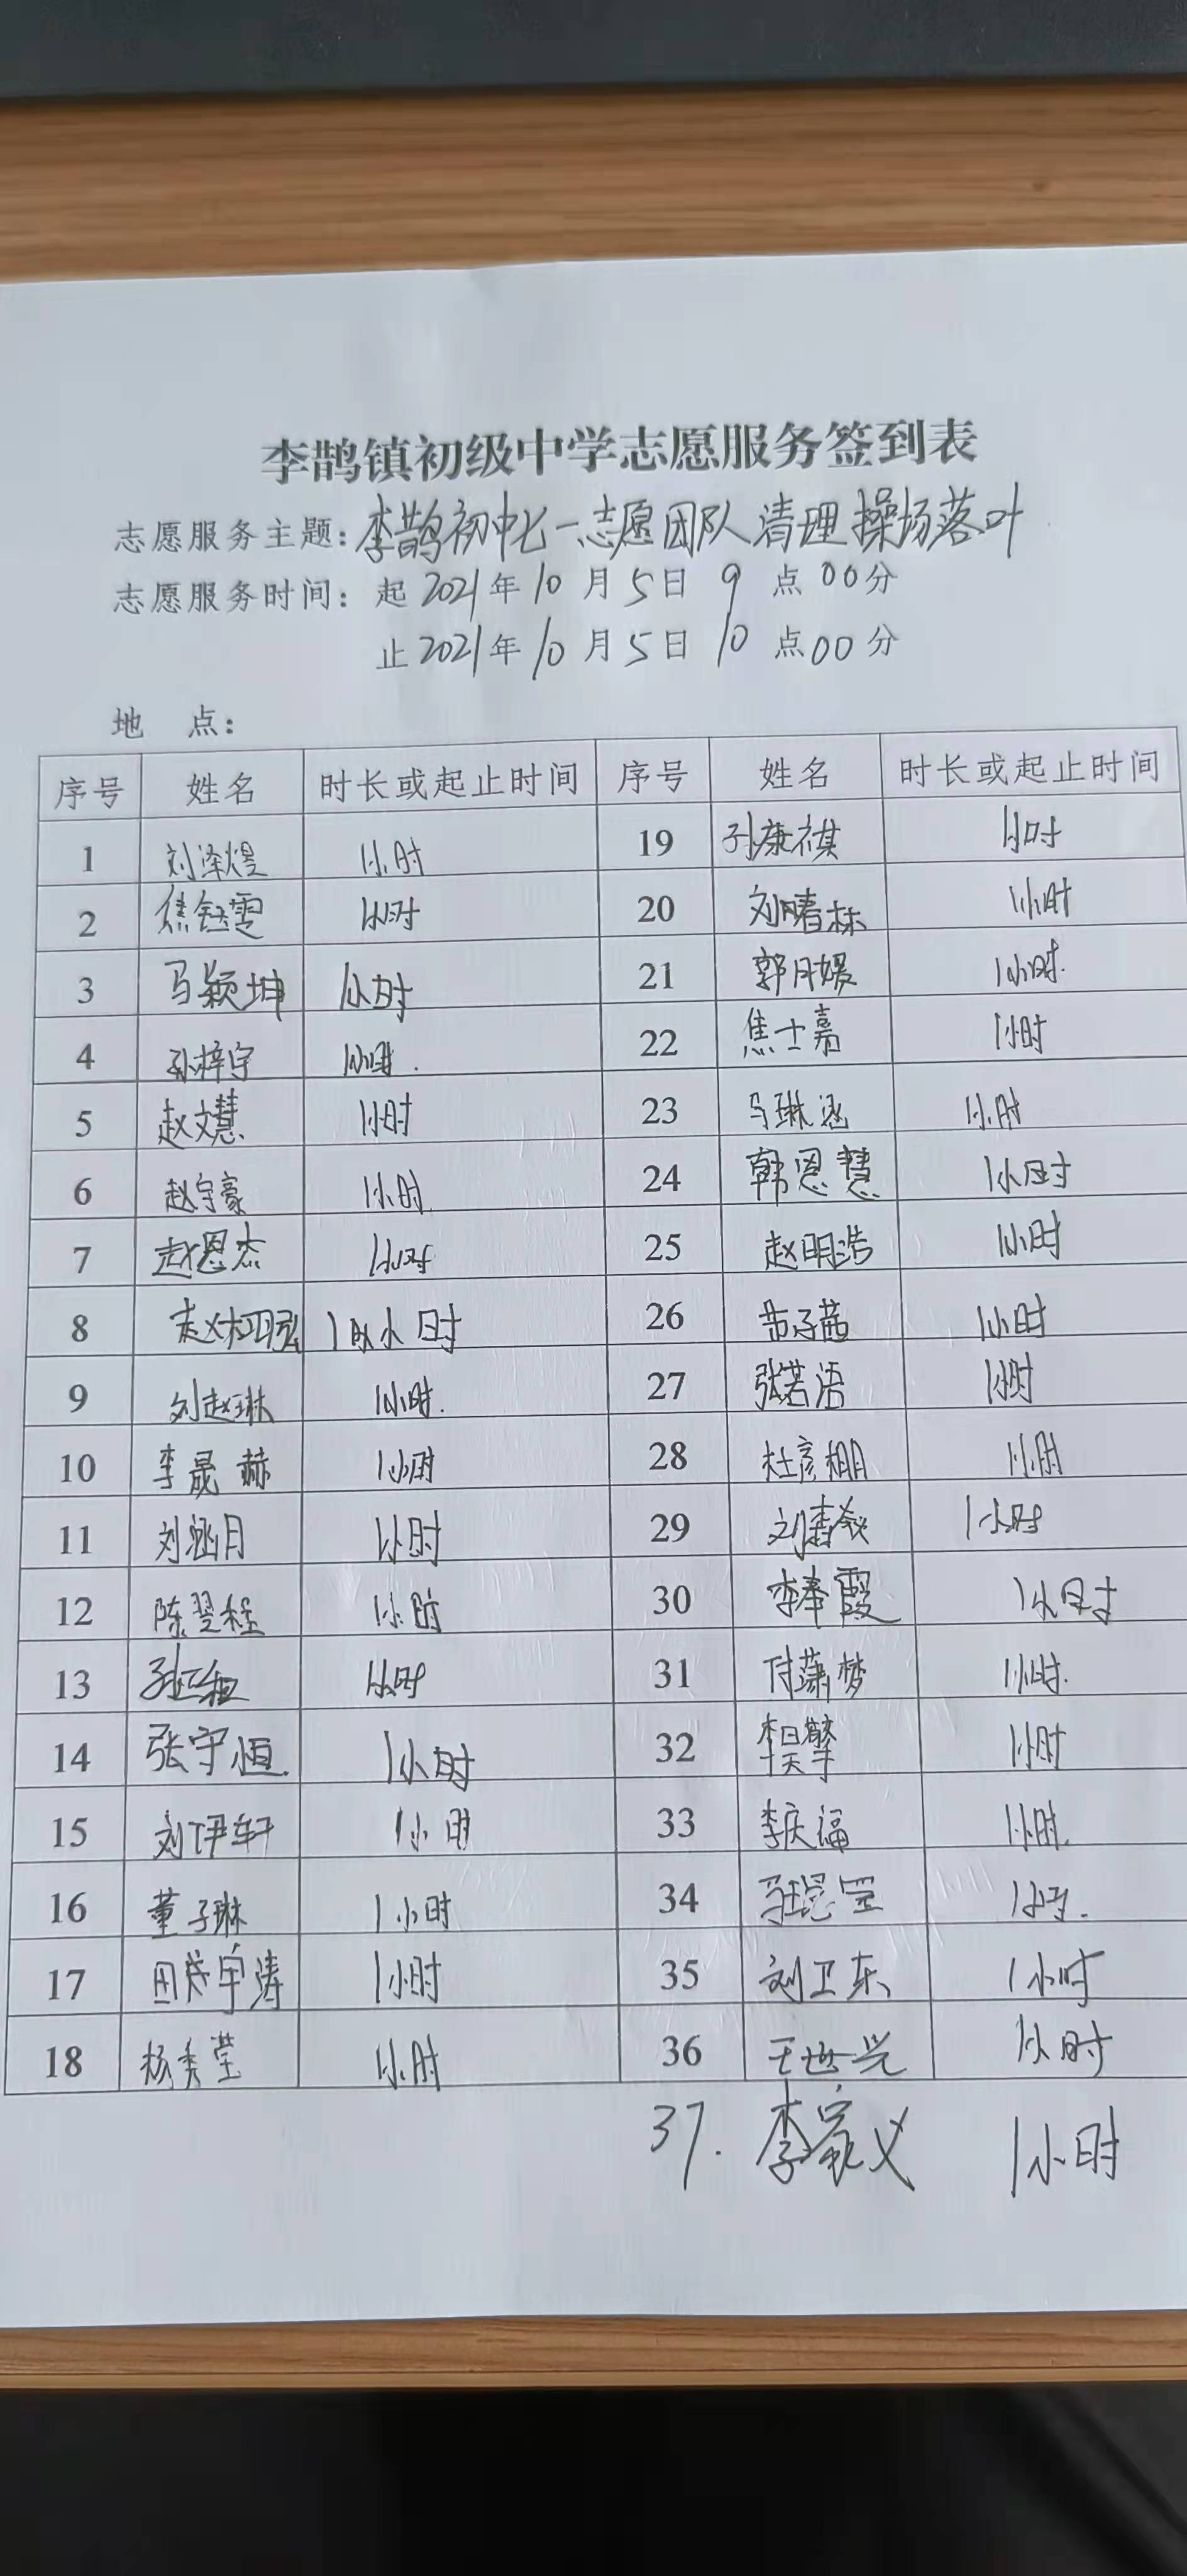 李鹊镇初级中学志愿服务签到表
志愿服务主题：李鹊初中七一志愿团队清理操场落叶
志愿服务时间：起2021年10月5日9点00分
止2021年10月5日10点00分
地 点：
序号 姓名 时长或起止时间 序号 姓名 时长或起止时间
1 刘泽煜 1小时 19 孙康祺 1小时
2 焦钰雯 1小时 20 刘晴栋 1小时
3 马颖坤 1小时 21 郭月媛 1小时.
4 孙梓宇 1小时. 22 焦士嘉 1小时
5 赵文慧 1小时 23 马琳涵 1小时
6 赵宇豪 1小时 24 韩恩慧 1小时
7 赵恩杰 1小时 25 赵明浩 1小时
8 1 小时 26 苗子茜 1小时
9 刘赵琳 1小时. 27 张若语 1小时
10 李晟赫 1小时 28 杜彦棚 1小时
11 刘涵月 1小时 29 刘 1小时
12 陈翌程 1小时 30 李奉霞 1小时
13 1小时 31 付潇梦 1小时.
14 张宁恒 1小时 32 李昊擎 1小时
15 刘伊轩 1小时 33 李庆福 1小时.
16 董子琳 1小时 34 1小时.
17 宇涛 1小时 35 刘卫东 1小时
18 杨秀莹 1小时 36 王世兴 1小时
37. 李家义 1小时